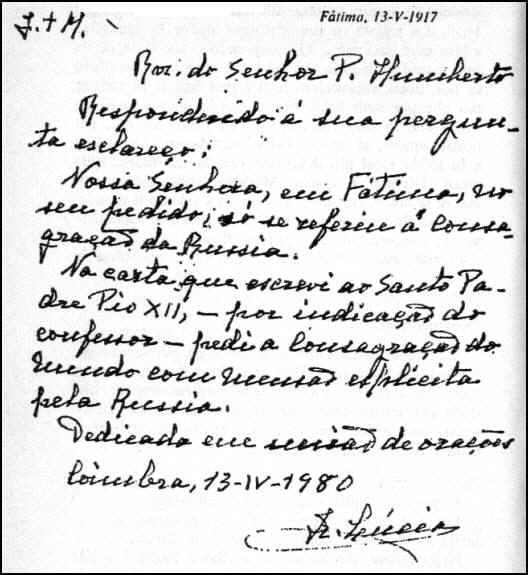 Fátima, 13-V-1917
J. + M.
Rev. do Senhor P. Humberto
Respondendo á sua pergun-
ta esclareço:
Nossa Senhora, em Fátima, no
seu pedido, só se referiu á Consa-
gração da Russia.
Na carta que escrevi ao Santo Pa-
dre Pio XII, – por indicação do
confessor – pedi a Consagração do
mundo com mensão esplicita
pela Russia.
Dedicada em união de orações
Coimbra, 13-IV-1980
Ir. Lúcia